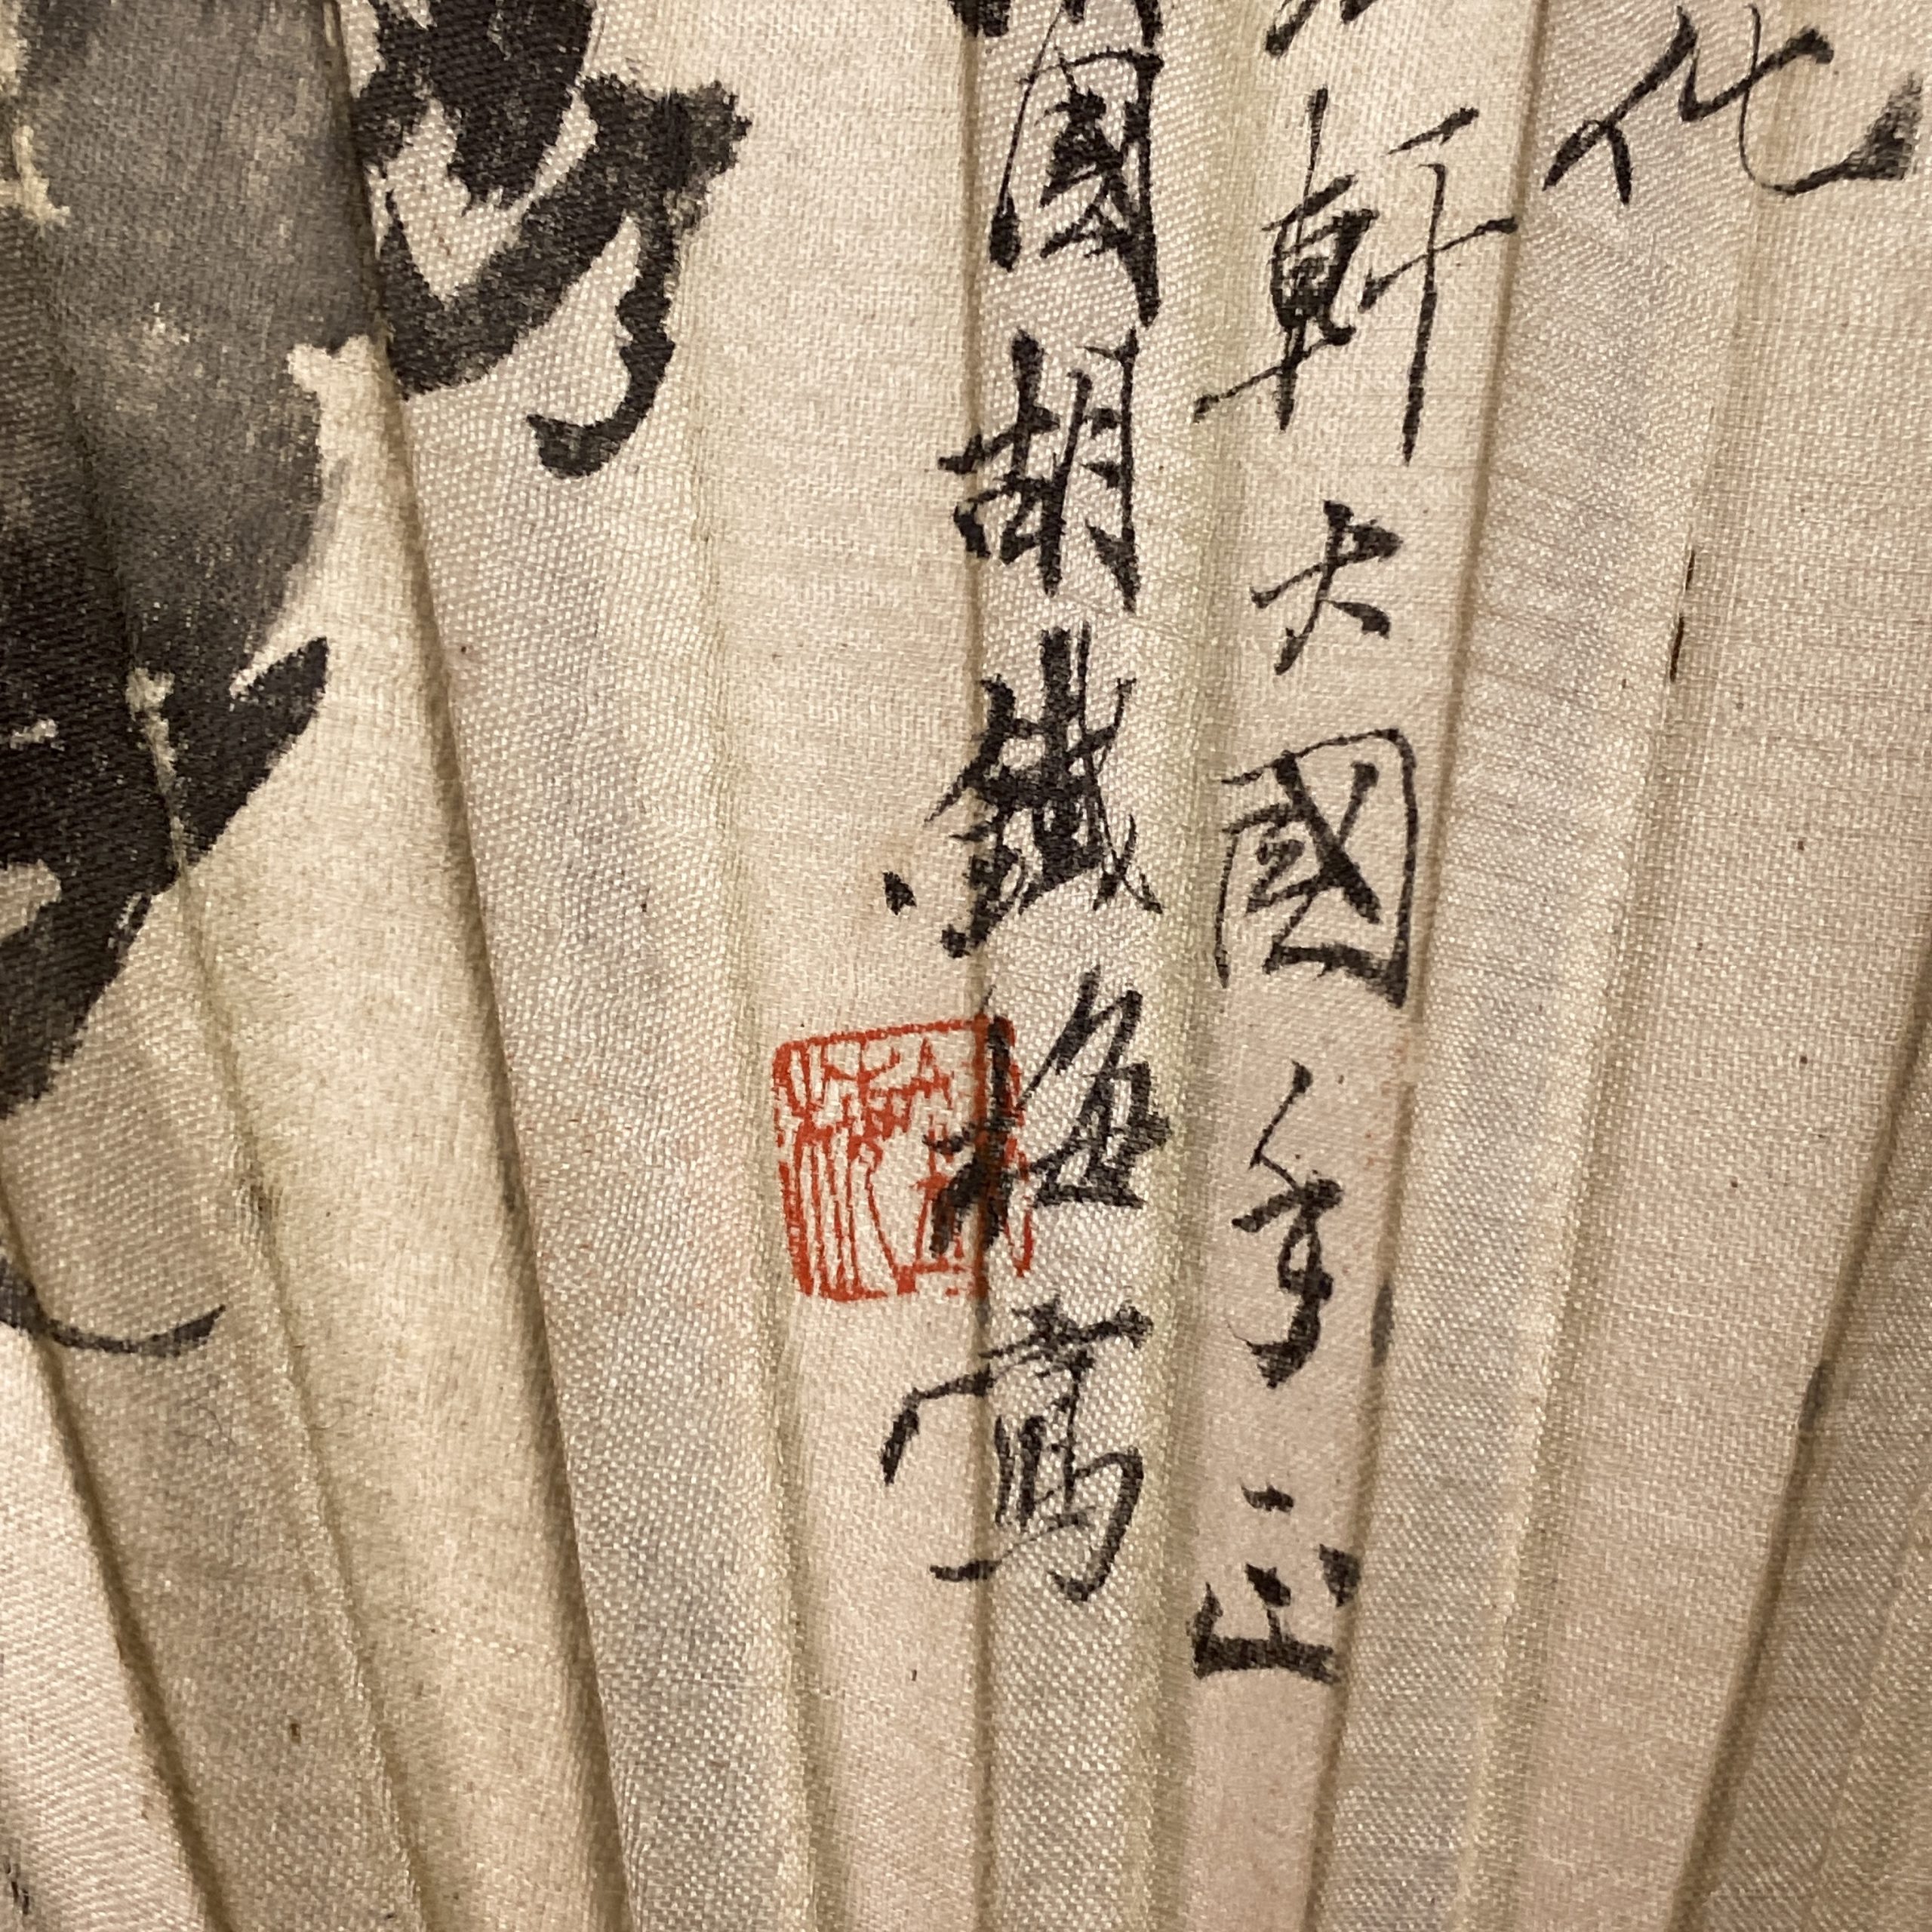 化
軒大國手正
國胡鐵梅寫